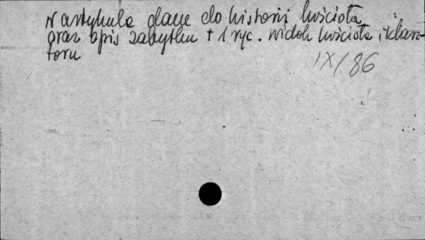 w artykule dane do historii kościoła
oraz opis zabytku + 1 ryc. widok kościoła i klasz-
toru
IX/86